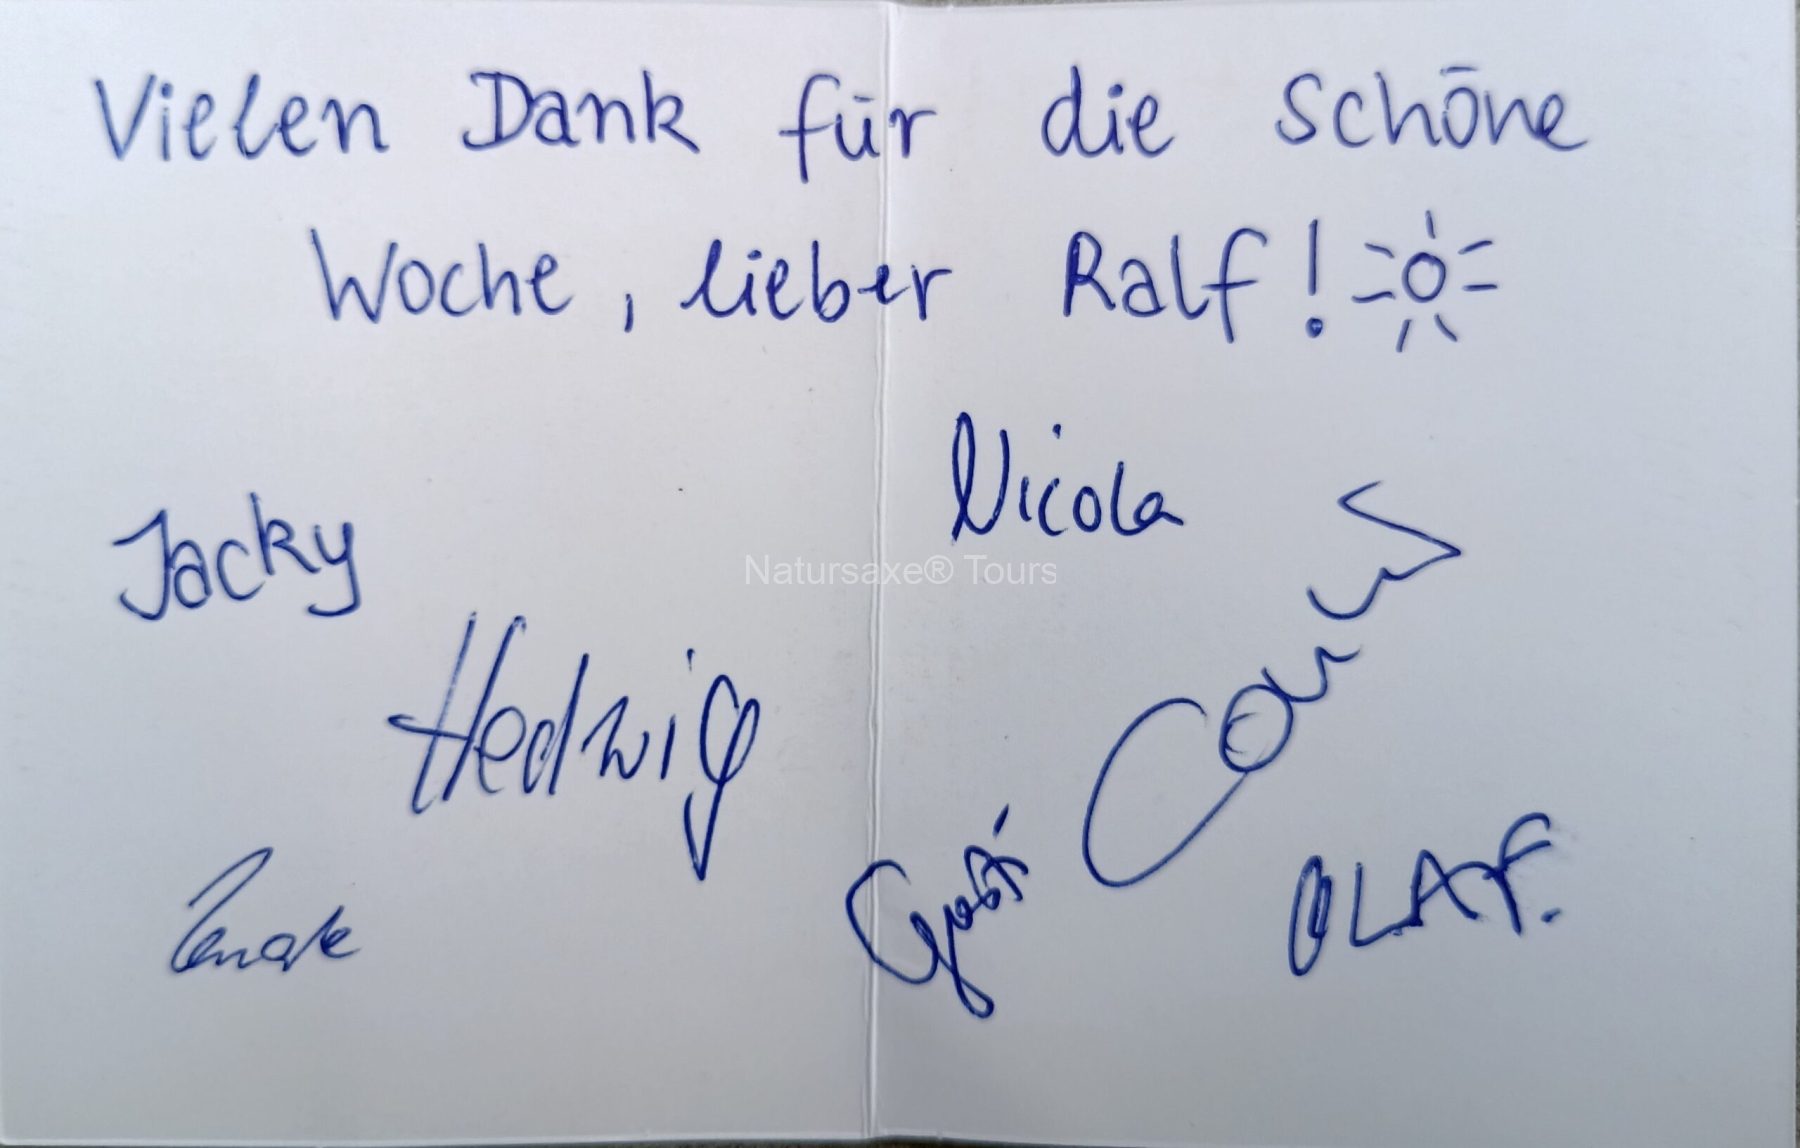 Vielen Dank für die schöne
Woche, lieber Ralf!
Nicola
Jacky
Natursaxe® Tours
Hedwig
OLAF.